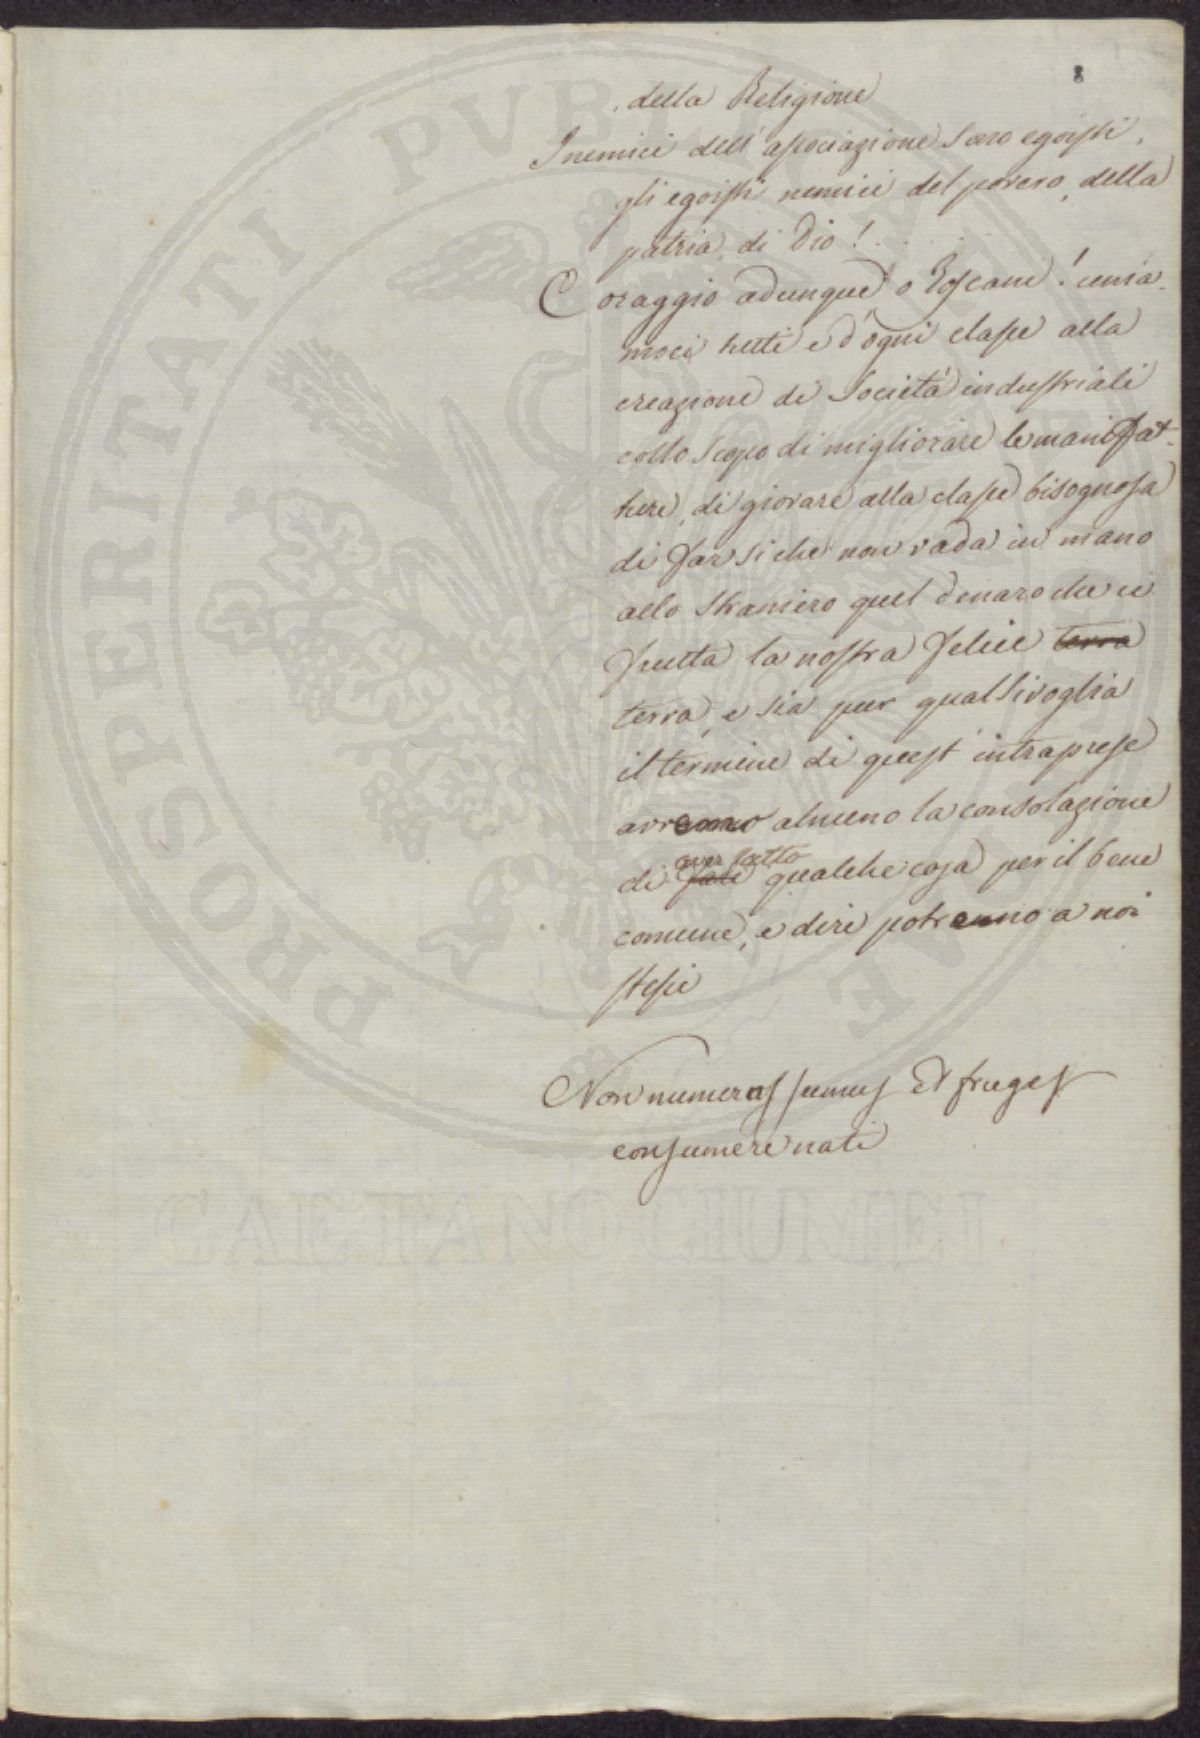 8
della Religione
I nemici dell'associazione sono egoisti,
gli egoisti nemici del povero, della
patria, di Dio!
Coraggio adunque o Toscani! unia-
moci tutti e d'ogni classe alla
creazione di Società industriali
collo scopo di migliorare le manifat-
ture, di giovare alla classe bisognosa
di far si che non vada in mano
allo straniero quel denaro che ci
frutta la nostra felice terra
terra, e sia pur qualsivoglia
il termine di quest'intraprese
avremo almeno la consolazione
aver fatto
di fare qualche cosa per il bene
comune, e dire potremo a noi
stessi
Non numeras sumus et fruges
consumere nati
PROSPERITATI PUBLICAE
GAETANO